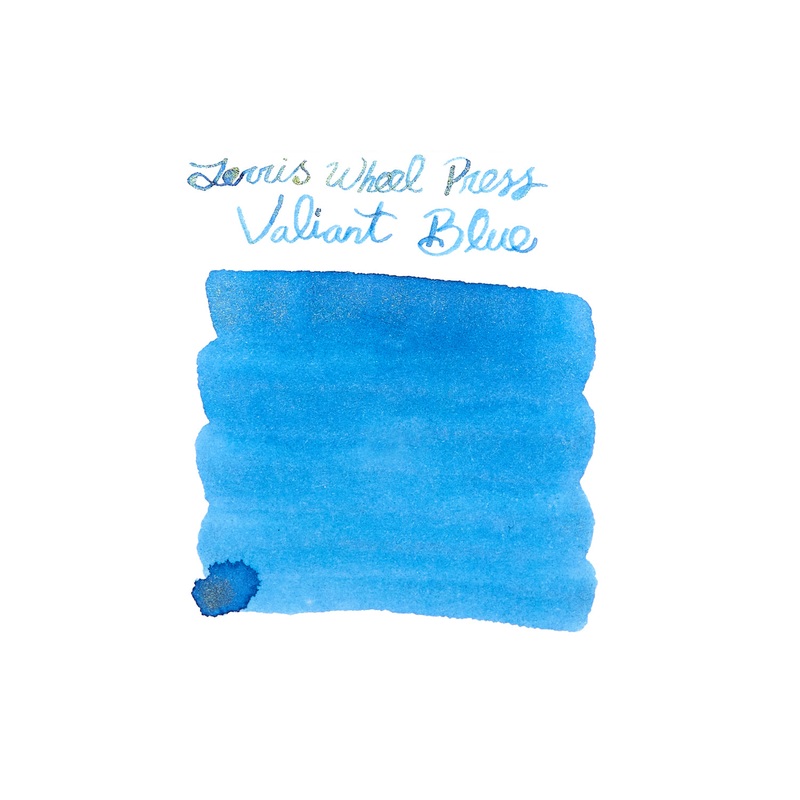 Ferris Wheel Press
Valiant Blue